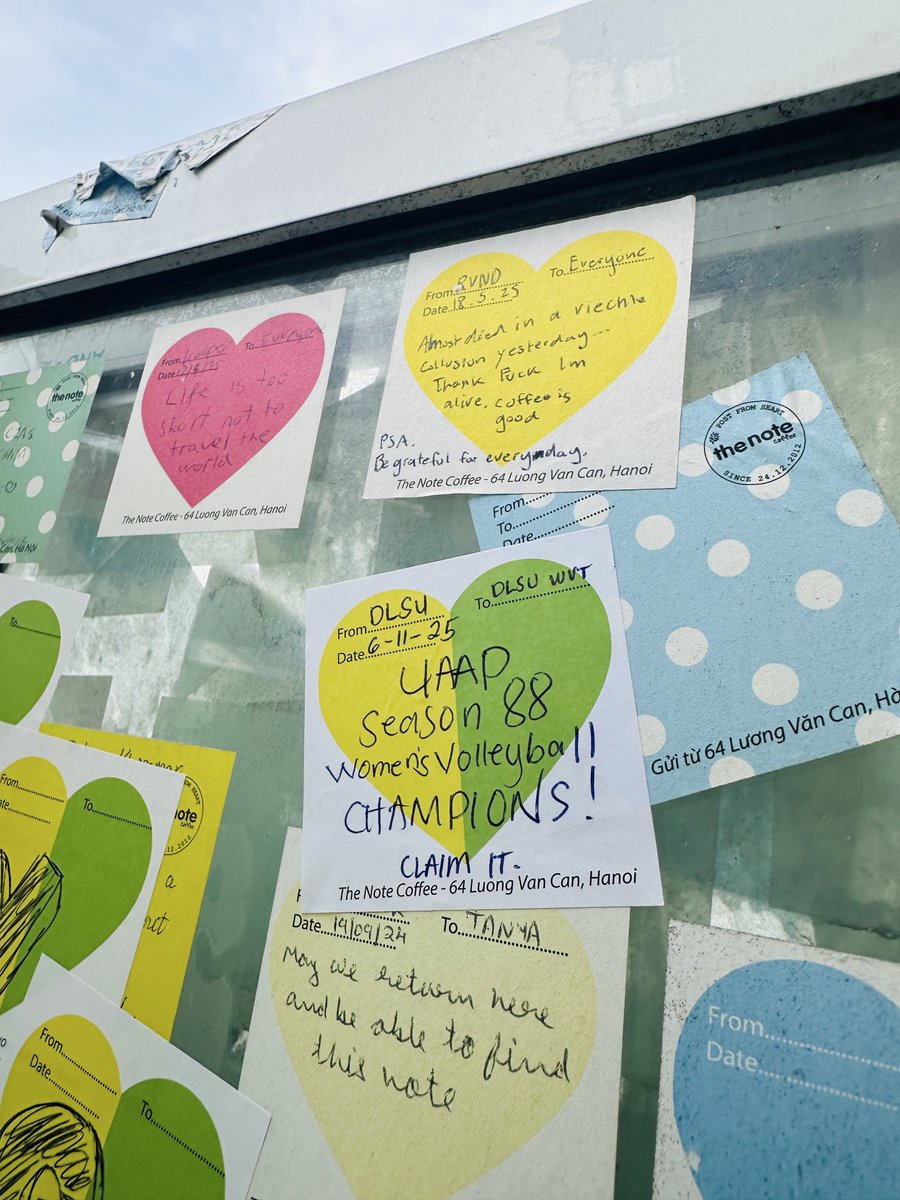 64 Lương Văn Can, Hanoi
From RVND To Everyone
Date 18.5.25
Almost died in a viechle
collusion yesterday...
Thank Fuck Im
alive, coffee is
good
PSA.
Be grateful for everynday.
The Note Coffee - 64 Luong Van Can, Hanoi
From To Everyone
Date
Life is too
short not to
travel the
world
The Note Coffee - 64 Luong Van Can, Hanoi
the note
coffee
POST FROM HEART
the note
coffee
SINCE 24.12.2012
From
To
Date
Gửi từ 64 Lương Văn Can, Hà
From DLSU To DLSU WVT
Date 6-11-25
UAAP
Season 88
Women's Volleyball
CHAMPIONS!
CLAIM IT.
The Note Coffee - 64 Luong Van Can, Hanoi
Date 19/09/24 To TANYA
May we return here
and be able to find
this note
To
From
Date
To
note
coffee
a
out
From
Date
To
From
Date